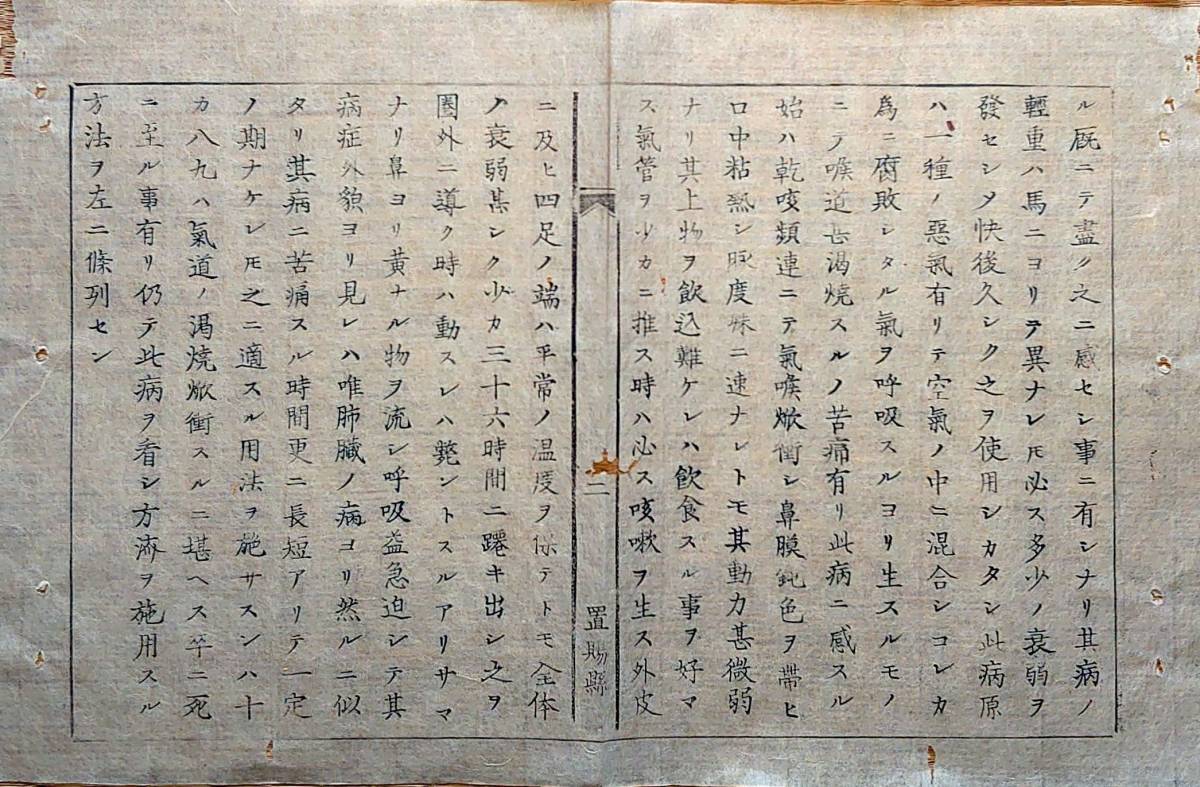 ル厩ニテ盡ク之ニ感セシ事ニ有シナリ其病ノ
輕重ハ馬ニヨリテ異ナレ𪜈必ス多少ノ衰弱ヲ
發セシメ快後久シク之ヲ使用シカタシ此病原
ハ一種ノ惡氣有リテ空氣ノ中ニ混合シコレカ
爲ニ腐敗シタル氣ヲ呼吸スルヨリ生スルモノ
ニテ喉道甚渇燒スルノ苦痛有リ此病ニ感スル
始ハ乾咳類連ニテ氣喉焮衝シ鼻膜鈍色ヲ帶ヒ
口中粘熱シ脈度殊ニ速ナレトモ其動力甚微弱
ナリ其上物ヲ飲込難ケレハ飲食スル事ヲ好マ
ス氣管ヲ少カニ推ス時ハ必ス咳嗽ヲ生ス外皮
二
置賜縣
ニ及ヒ四足ノ端ハ平常ノ温度ヲ保テトモ全体
ノ衰弱甚シク少カ三十六時間ニ踡キ出シ之ヲ
圏外ニ導ク時ハ動スレハ斃ントスルアリサマ
ナリ鼻ヨリ黄ナル物ヲ流シ呼吸益急迫シテ其
病症外貌ヨリ見レハ唯肺臓ノ病コリ然ルニ似
タリ其病ニ苦痛スル時間更ニ長短アリテ一定
ノ期ナケレ𪜈之ニ適スル用法ヲ施サスンハ十
カ八九ハ氣道ノ渇燒焮衝スルニ堪ヘス卒ニ死
ニ至ル事有リ仍テ此病ヲ看シ方濟ヲ施用スル
方法ヲ左ニ條列セン